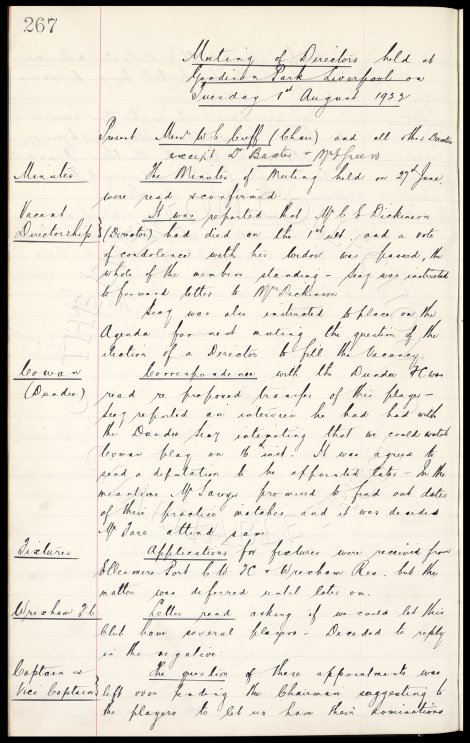 267
Meeting of Directors held at
Goodison Park Liverpool on
Tuesday 1st August 1922
Present Messrs W. C. Cuff (Chair) and all other Directors
except Dr Baxter & Mr Green
Minutes The Minutes of Meeting held on 27th June
were read & confirmed
Vacant It was reported that Mr C E Dickinson
Directorship (Director) had died on the 1st ult, and a vote
of condolence with his widow was passed, the
whole of the members standing - Secy was instructed
to forward letter to Mrs Dickinson
Secy was also instructed to place on the
Agenda for next meeting the question of the
election of a Director to fill the Vacancy.
Cowan Correspondence with the Dundee FC was
(Dundee) read re proposed transfer of this player -
Secy reported an interview he had had with
the Dundee Secy intimating that we could watch
Cowan play on inst. It was agreed to
send a deputation to be appointed later - In the
meantime Mr Sawyer promised to find out dates
of their practice matches and it was decided
Mr attend same.
Fixtures Applications for fixtures were received from
Ellesmere Port C.W. FC & Wrexham Res. but the
matter was deferred until later on.
Wrexham F.C Letter read asking if we could let this
Club have several players - Decided to reply
in the negative.
Captain & The question of these appointments was
Vice Captain left over pending the Chairman suggesting to
the players to let us have their nominations